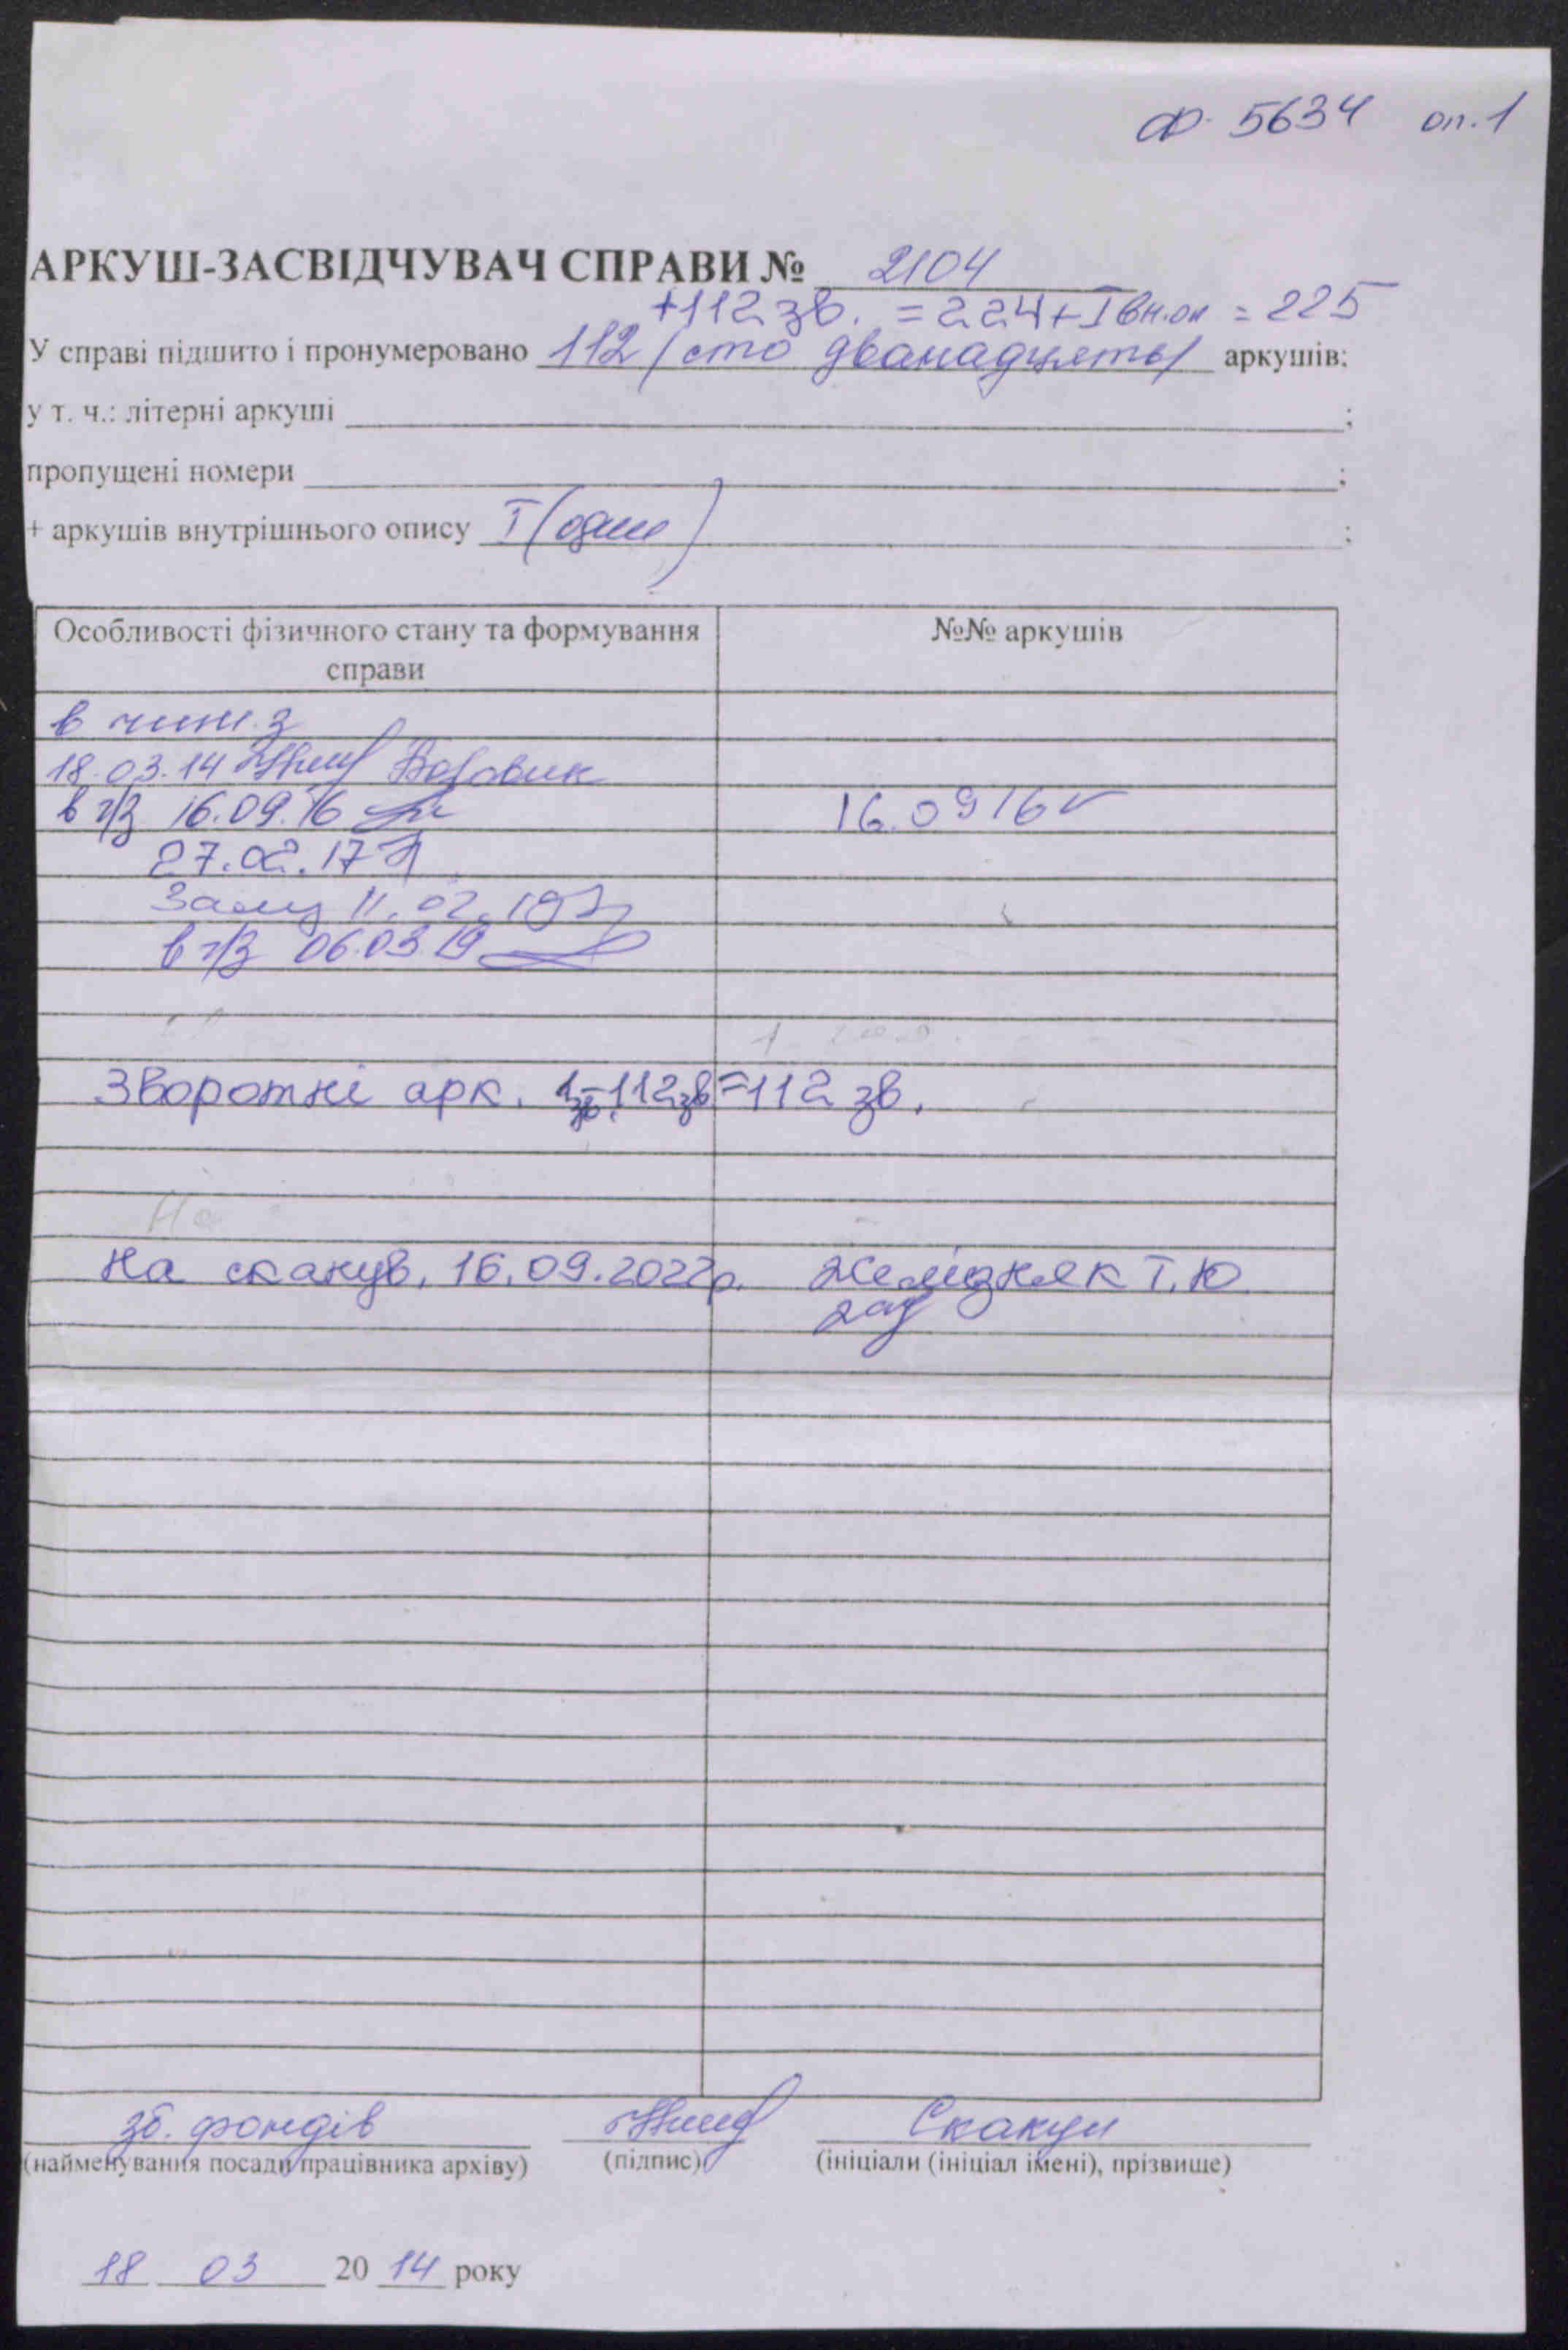 Ф. 5634 оп. 1
АРКУШ-ЗАСВІДЧУВАЧ СПРАВИ № 2104
+112 зв. = 224 + I вн.оп = 225
У справі підшито і пронумеровано 112 (сто дванадцять) аркушів;
у т. ч.: літерні аркуші ;
пропущені номери ;
+ аркушів внутрішнього опису I (один) ;
Особливості фізичного стану та формування
справи
№№ аркушів
в чит. з
18.03.14
в ч/з 16.09.16 16.09 16
27.02.17
11.02.19
в ч/з 06.03.19
Зворотні арк. 1зв.-112зв = 112 зв.
На
На сканув. 16.09.2022р. Желізняк Т.Ю
зб. фондів Скакун
(найменування посади працівника архіву) (підпис) (ініціали (ініціал імені), прізвище)
18 03 20 14 року